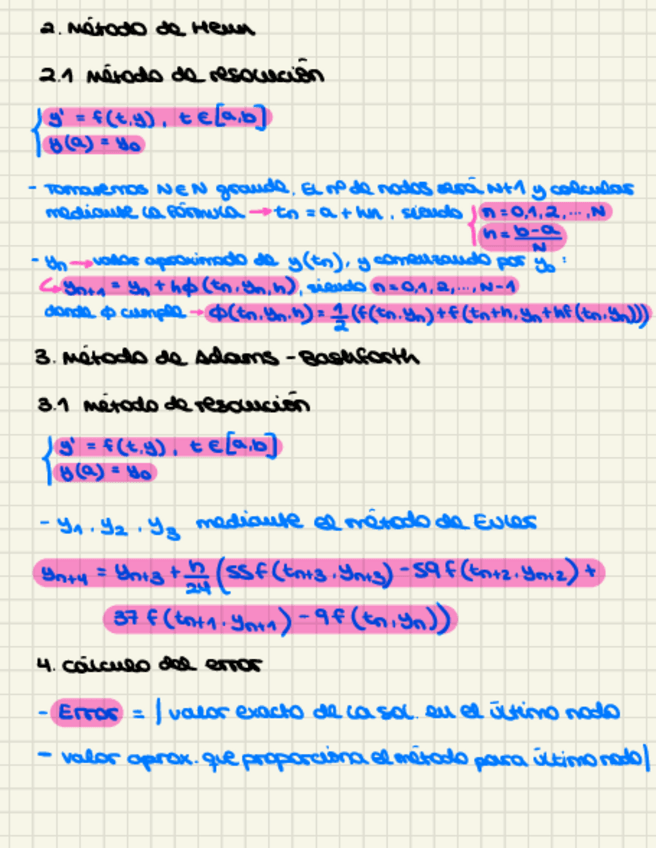 2. Método de Heun
2.1 método de resolución
y' = f(t,y), t ∈ [a,b]
y(a) = y₀
- Tomaremos N ∈ N grande. El nº de nodos será N+1 y calculas
mediante la fórmula → tn = a + hn, siendo n = 0,1,2,...,N
h = b-a/N
- yn → valor aproximado de y(tn), y comenzando por y₀:
yn+1 = yn + hϕ(tn,yn,h), siendo n = 0,1,2,...,N-1
donde ϕ cumple → ϕ(tn,yn,h) = 1/2 (f(tn,yn) + f(tn+h, yn+hf(tn,yn)))
3. Método de Adams - Bashforth
3.1 método de resolución
y' = f(t,y), t ∈ [a,b]
y(a) = y₀
- y₁, y₂, y₃ mediante el método de Euler
yn+4 = yn+3 + h/24 (55f(tn+3, yn+3) - 59f(tn+2, yn+2) +
37f(tn+1, yn+1) - 9f(tn, yn))
4. cálculo del error
- Error = | valor exacto de la sol. en el último nodo
- valor aprox. que proporciona el método para último nodo|